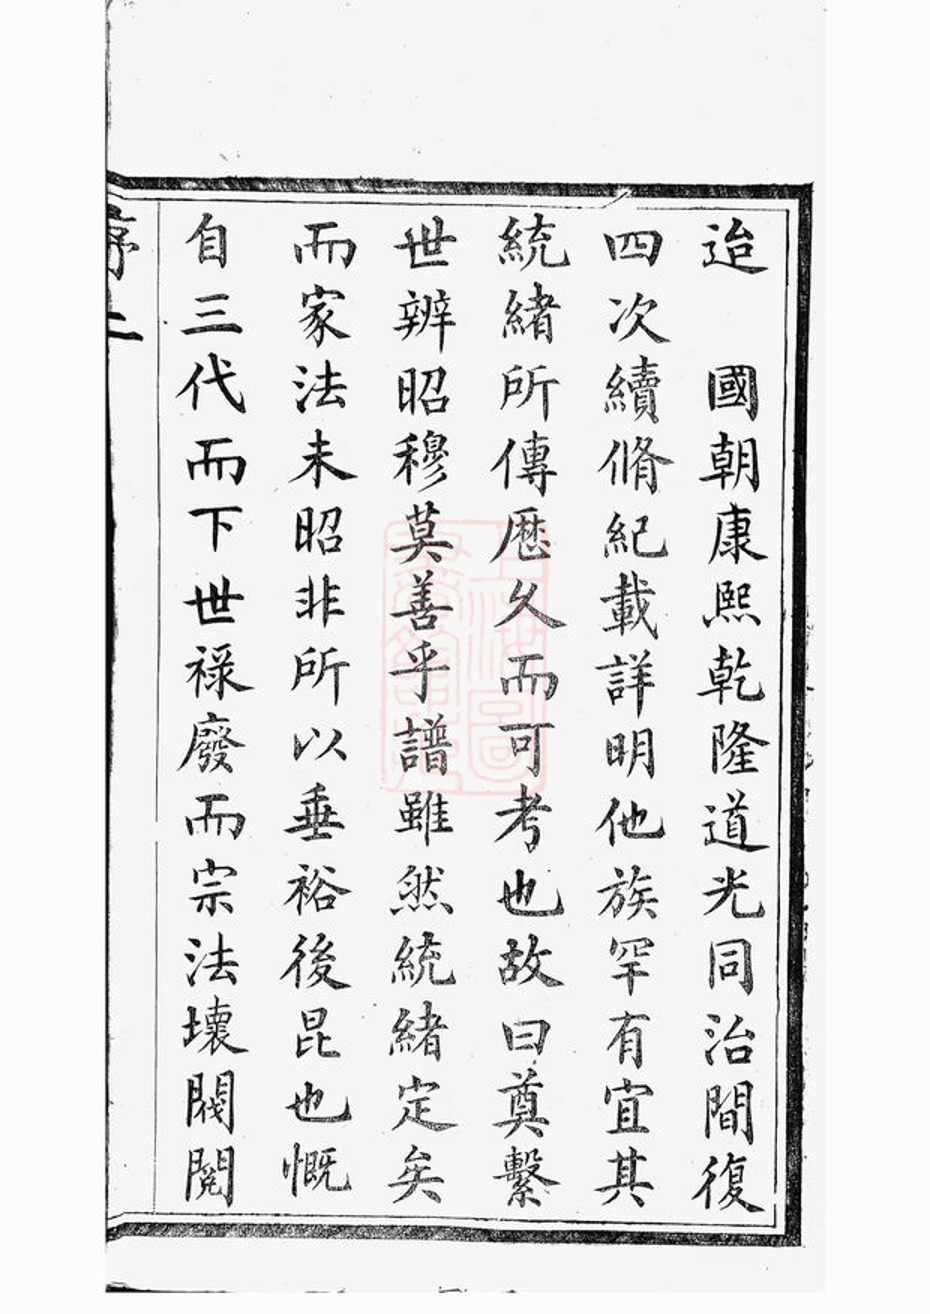 迨　國朝康熙乾隆道光同治間復
四次續脩紀載詳明他族罕有宜其
統緒所傳歷久而可考也故曰奠繫
世辨昭穆莫善乎譜雖然統緒定矣
而家法未昭非所以垂裕後昆也慨
自三代而下世祿廢而宗法壞閥閱
序上